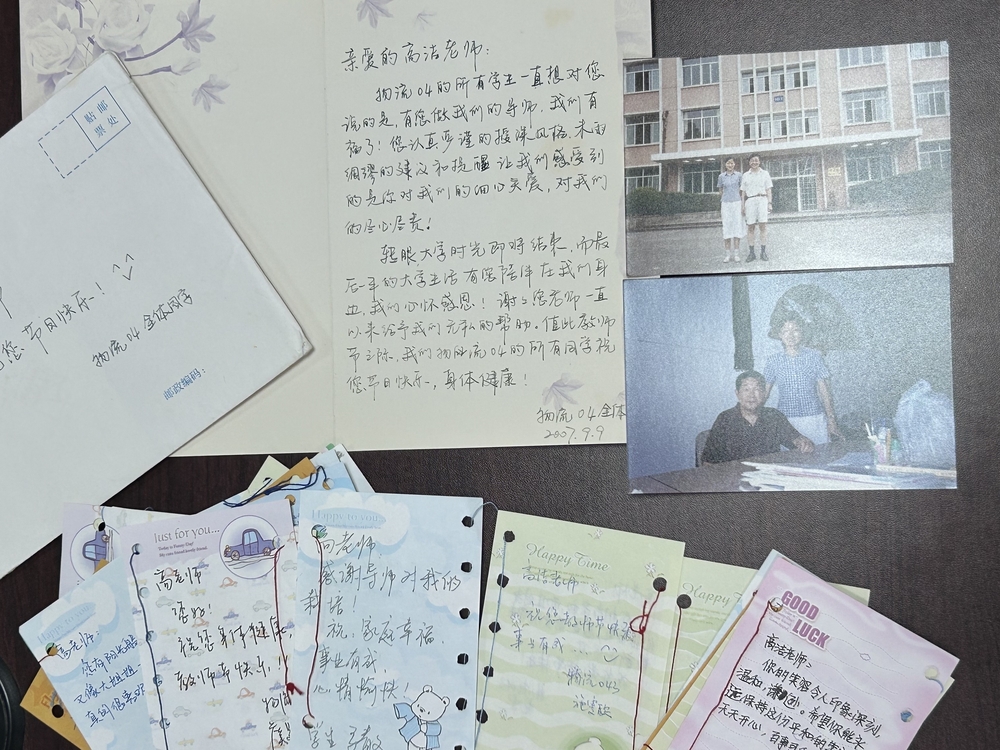 亲爱的高洁老师:
物流04的所有学生一直想对您
说的是,有您做我们的导师,我们有
福了!您认真严谨的授课风格,未雨
绸缪的建议和提醒让我们感受到
的是你对我们的细心关爱,对我们
的尽心尽责!
转眼大学时光即将结束,而最
后一年的大学生活有您陪伴在我们身
边,我们心怀感恩!谢谢您老师一直
以来给予我们无私的帮助。值此教师
节之际,我们物流04的所有同学祝
您节日快乐,身体健康!
物流04全体
2007.9.9
贴邮
票处
您节日快乐!
物流04全体同学
邮政编码:
Just for you...
高老师
您好!
祝您身体健康
教师节快乐!
Happy to you
高老师:
Happy to you
向老师,
感谢导师对我的
栽培
祝:家庭幸福,
事业有成,
心情愉快!
学生
Happy Time
高洁老师
祝您教师节快乐
事业有成
物流043
Happy Time
GOOD
LUCK
高洁老师:
你的笑容令人印象深刻,
温和,
天天开心,百事